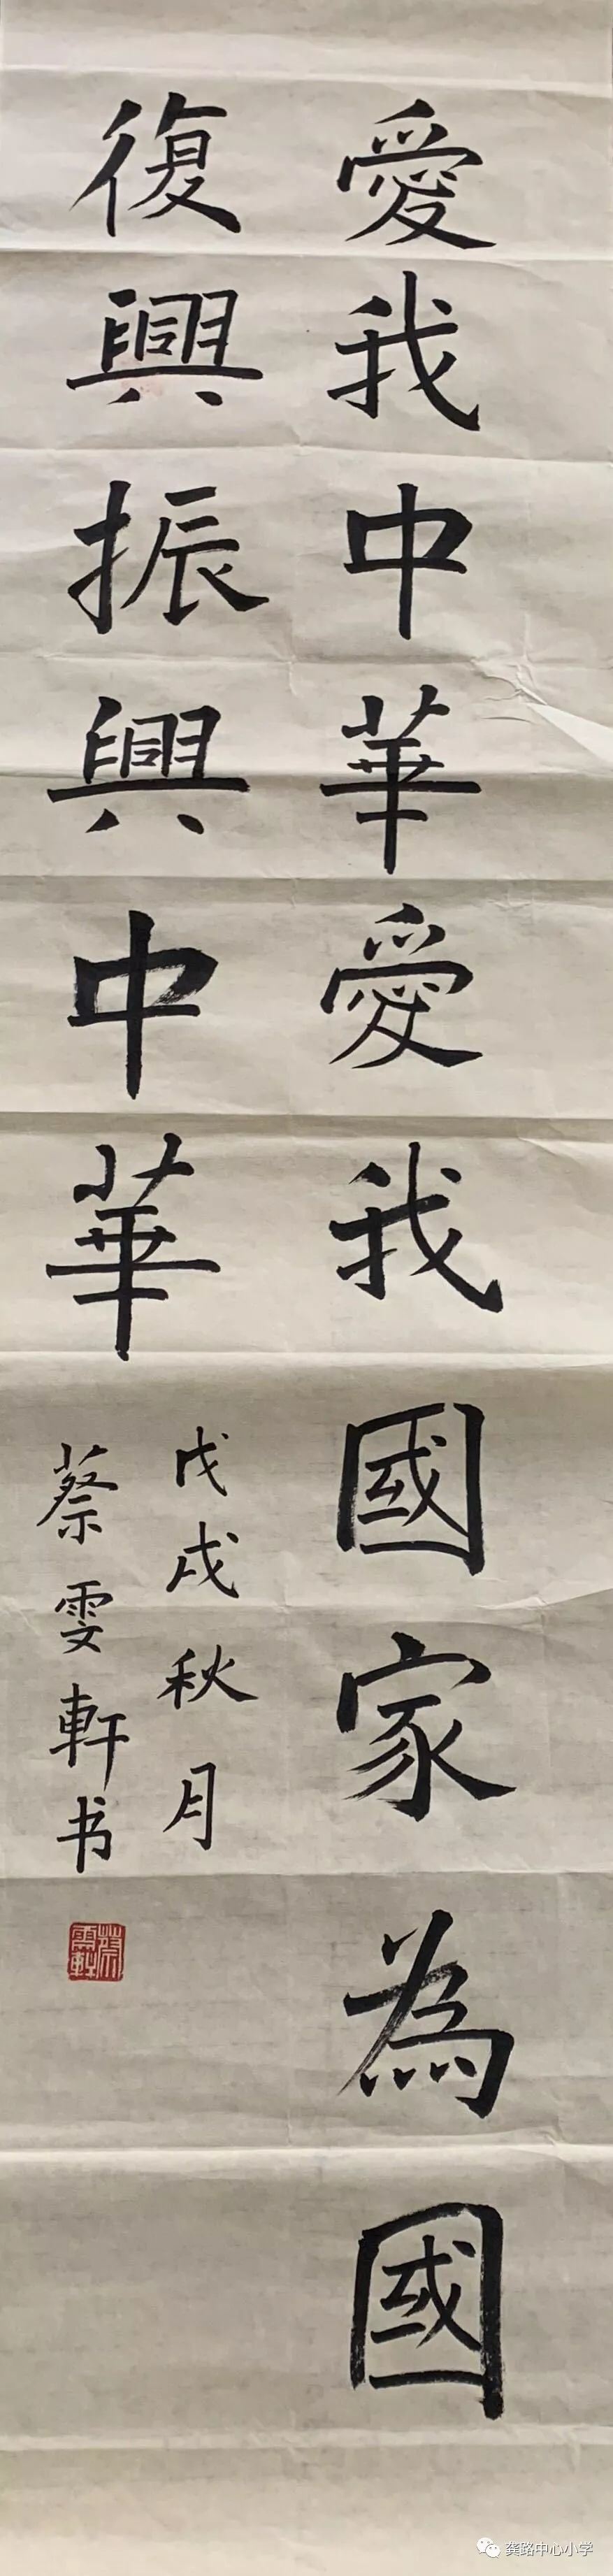 愛我中華愛我國家為國
復興振興中華
戊戌秋月
蔡雯軒书
龚路中心小学